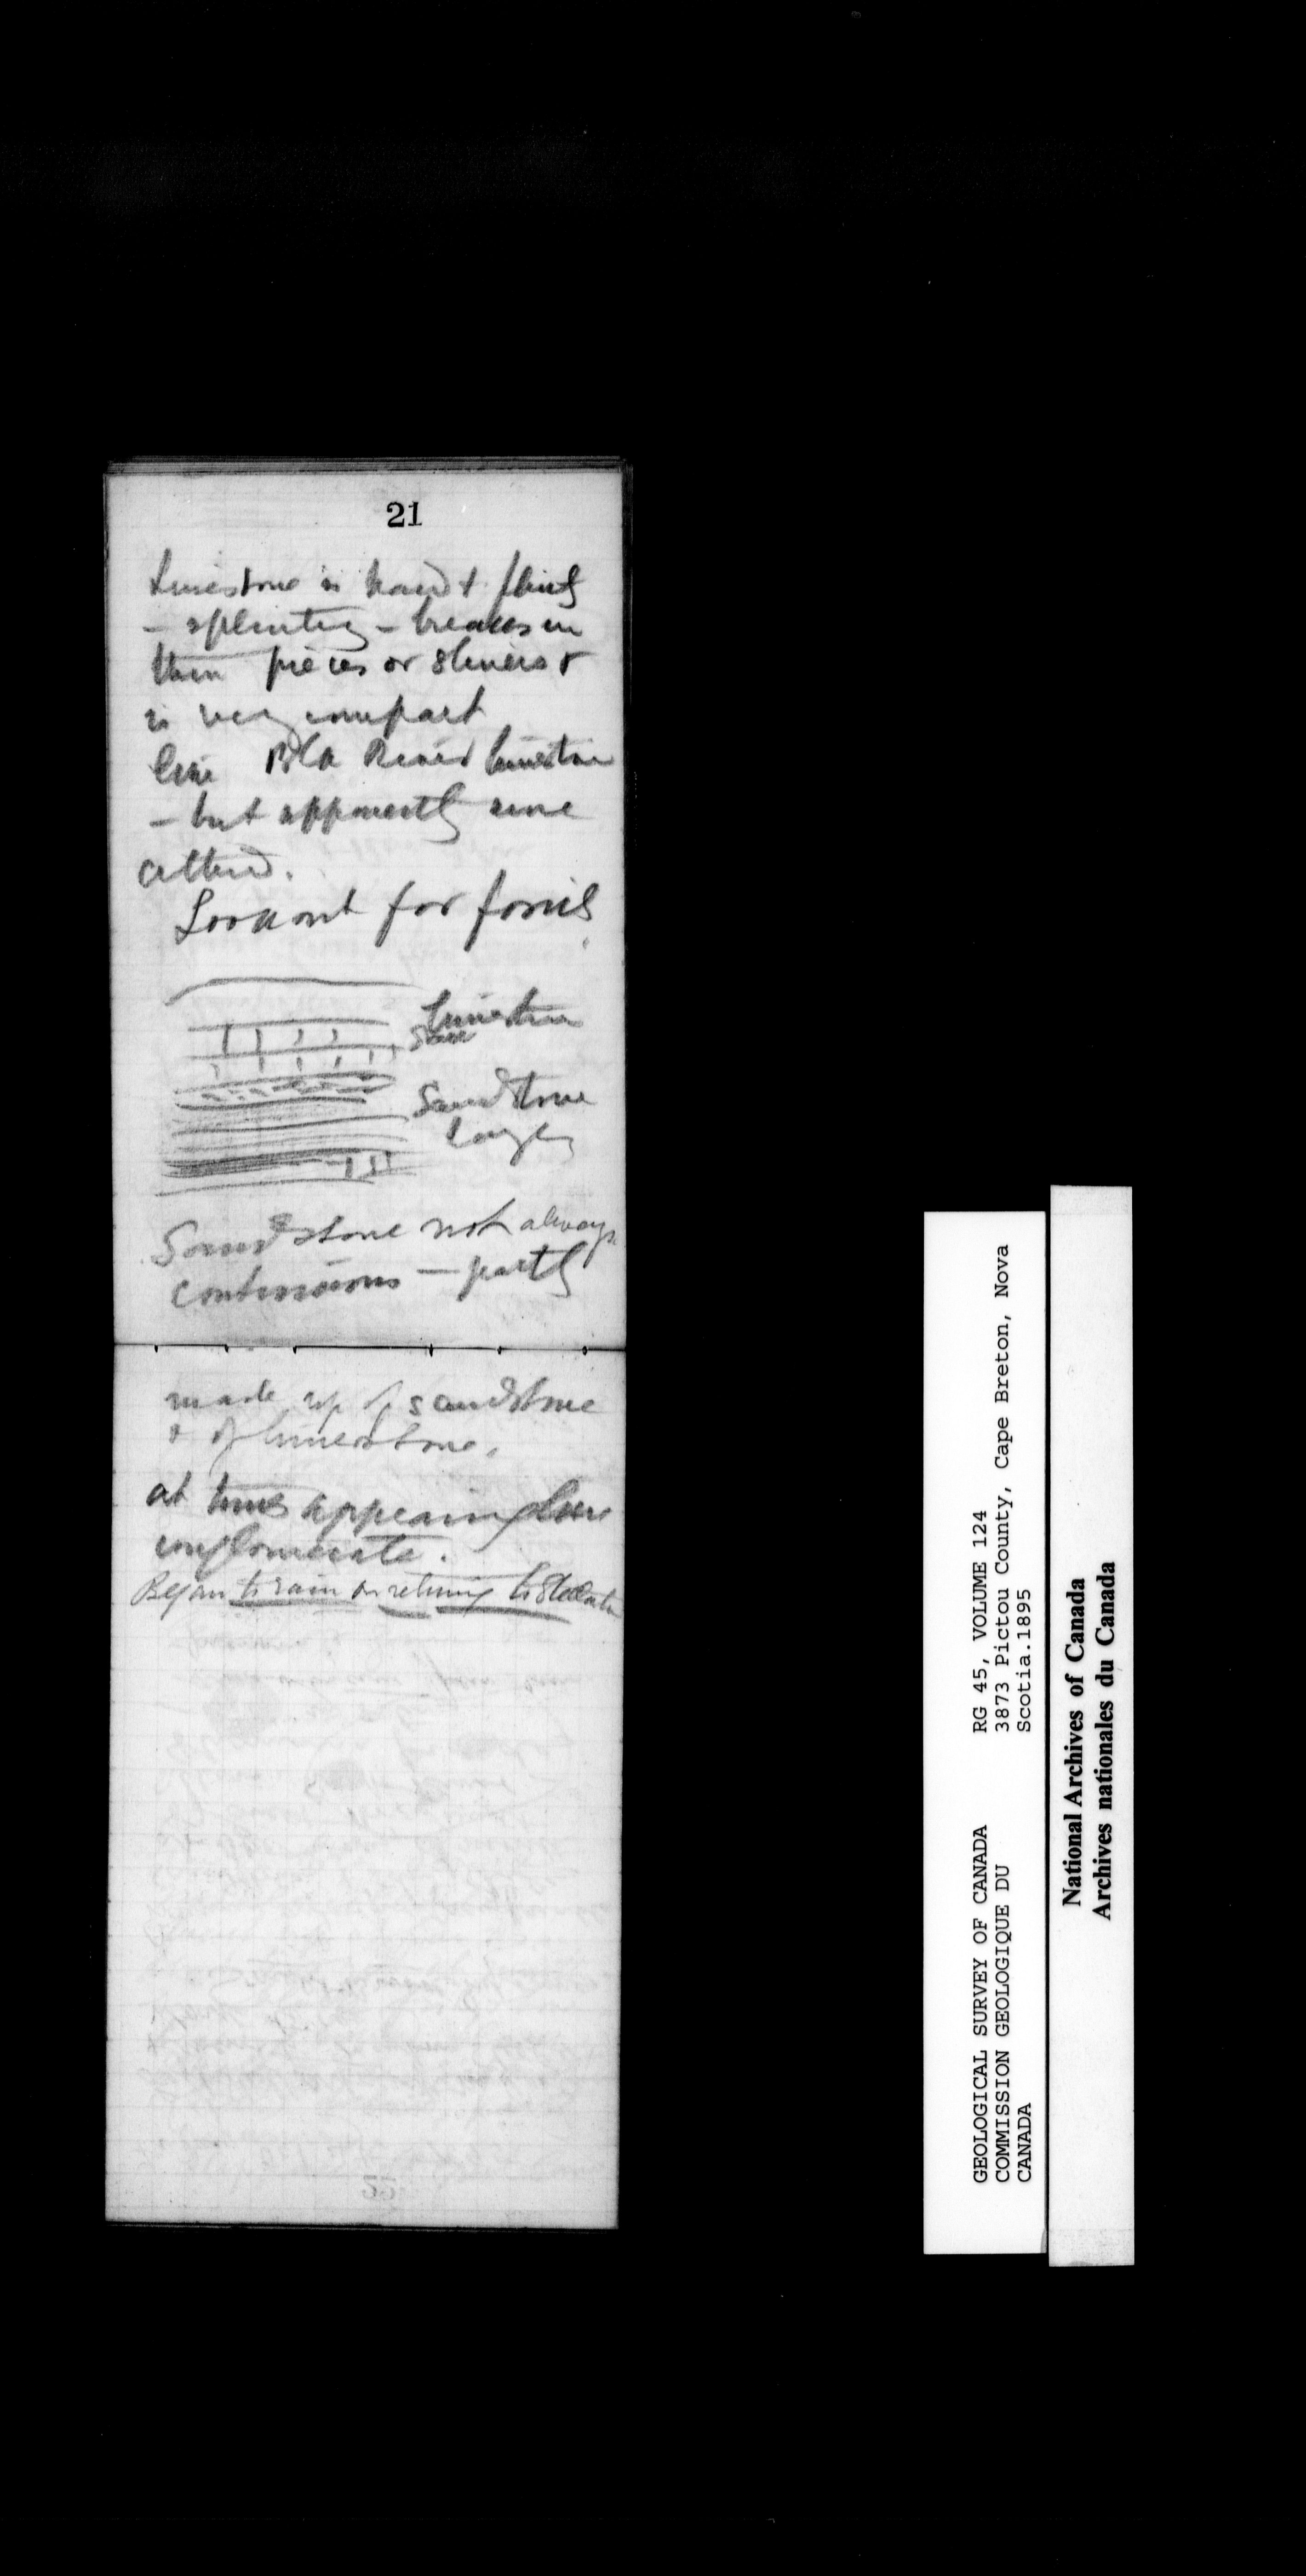 21
Limestone is hard & flinty
- splintery - breaks in
thin pieces or slivers &
is very compact
like Blk River limestone
- but apparently more
altered.
Look out for fossils
Limestone
Sandstone
layer
Sandstone not always
continuous - partly
made up of sandstone
& of limestone.
at times appearing like
conglomerate.
Began to rain on returning to
GEOLOGICAL SURVEY OF CANADA
COMMISSION GEOLOGIQUE DU
CANADA
RG 45, VOLUME 124
3873 Pictou County, Cape Breton, Nova
Scotia.1895
National Archives of Canada
Archives nationales du Canada